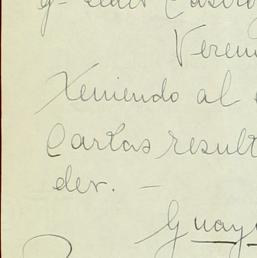 y Castro
Veren
Xeniendo al
Cartas result
der. —
Guay